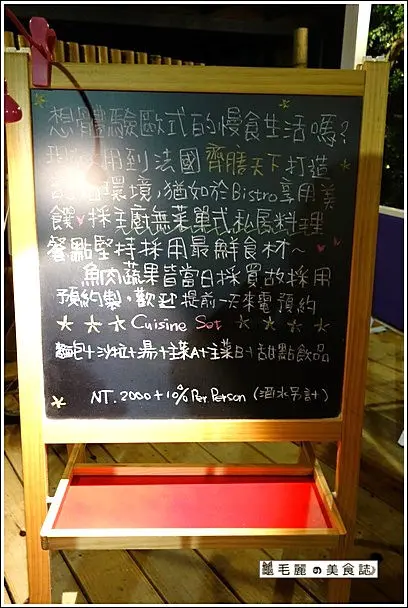 想體驗歐式的慢食生活嗎?
用到法國齊膳天下打造
環境,猶如於Bistro享用美
饌♥採主廚無菜單式私房料理
餐點堅持採用最鮮食材~
魚肉蔬果皆當日採買故採用
預約製,歡迎提前一天來電預約
☆☆☆Cuisine Set☆☆☆☆
麵包+沙拉+湯+主菜A+主菜B+甜點飲品
NT.2000+10% Per Person(酒水另計)
毛麗の美食誌